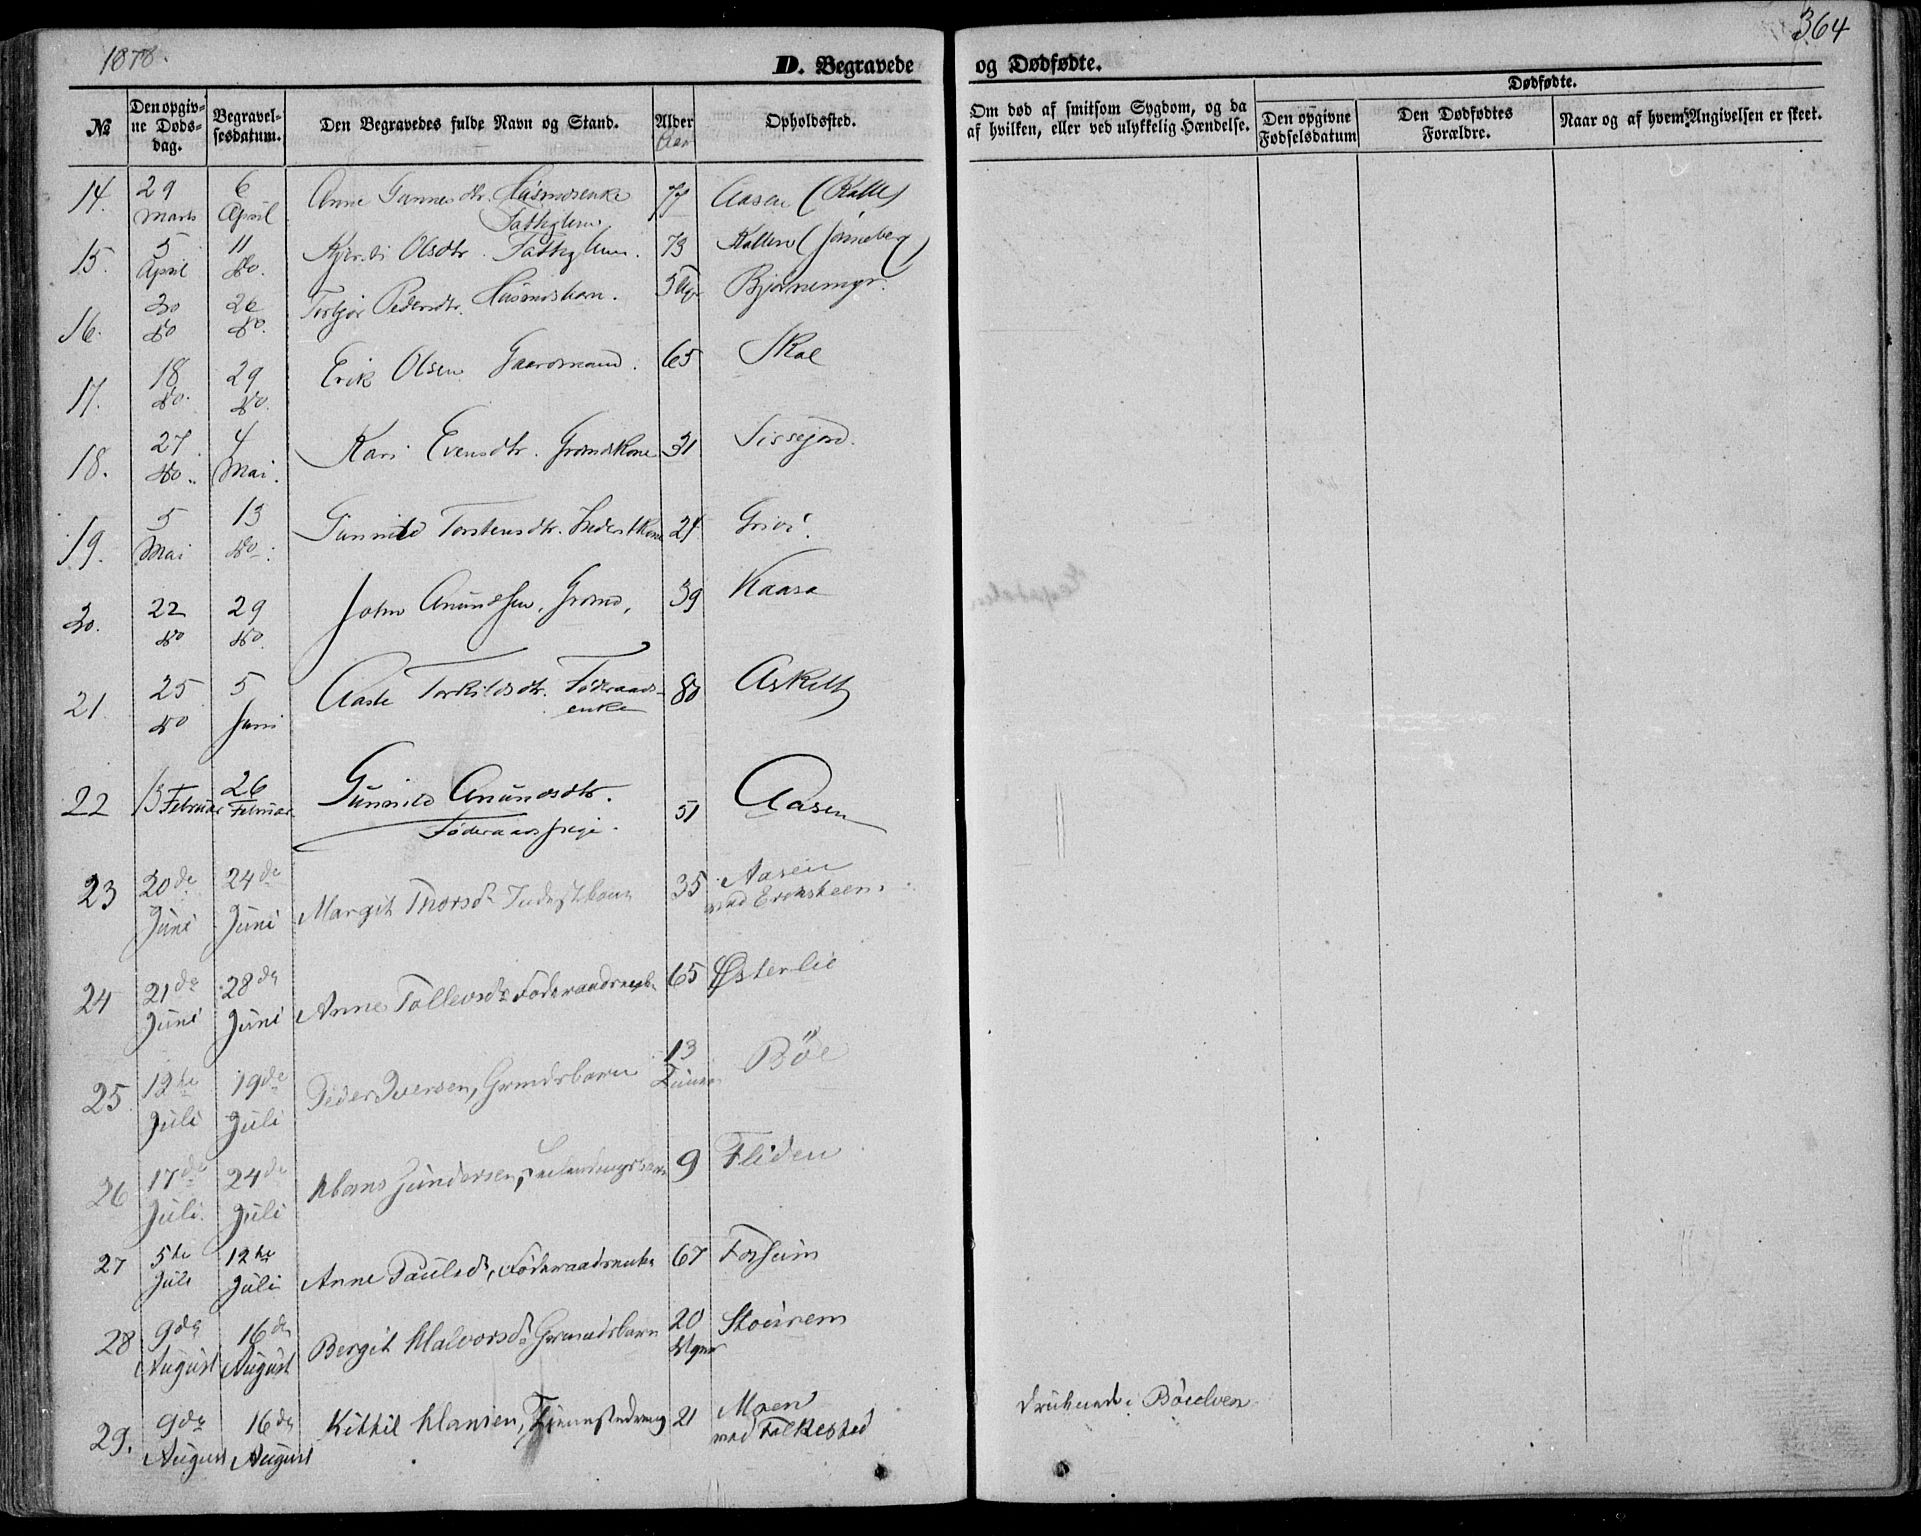 1878.
D. Begravede og Dødfødte.
364
№
Den opgiv-
ne Døds-
dag.
Begravel-
sesdatum.
Den Begravedes fulde Navn og Stand.
Alder
Aar
Opholdssted.
Om død af smitsom Sygdom, og da
af hvilken, eller ved ulykkelig Hændelse.
Dødfødte.
Den opgivne
Fødselsdatum
Den Dødfødtes
Forældre.
Naar og af hvem Angivelsen er skeet.
14. 29 Marts 6 April Anne Gunnesdtr. Husmdsenke 77 Aasen (Kalle)
Fattiglem
15. 5 April 11 do. Olsdtr. Fattiglem. 73
16. 30 do 26 do. Torbjør Pedersdtr. Husmdsbarn. Bjørnemyr.
17. 18 do. 29 do. Erik Olsen Gaardmand. 65 Skoe
18. 27 do. 4 Mai. Kari Evensdtr. Grmdskone 31 Sissejord.
19. 5 Mai 13 do. Gunnild Torstensdtr. Inderstkone 24 Grivi
20. 22 do 29 do. John Anundsen, Grmd, 39 Kaasa
21. 25 do 5 Juni Aaste Torkildsdtr. Føderaads-
enke 80 Askilt
22 13 Februar 26 Februar Gunnild Anundsdtr.
Føderaads 51 Aasen
23 20de Juni 24de Juni Margit Thorsd. Inderstkone 35 Aasen
ved Eroksteen
24 21de Juni 28de Juni Anne Tollevsdr Føderaadsenke 65 Østerlie
25. 12te Juli 19de Juli Peder Iversen, Grmdsbarn 13
Timer Bøe
26 17de Juli. 24de Juli Hans Gundersen, 9 Fliden
27 5te Juli 12te Juli Anne Paulsd., Føderaadsenke 67 Forheim
28 9de August 16de August Bergit Halvorsdr Grmandsbarn 20
Dage Stourem
29. 9de August 16de August Kittil Hansen, 21 Moen
ved Folkestad
druknede i Bøelven